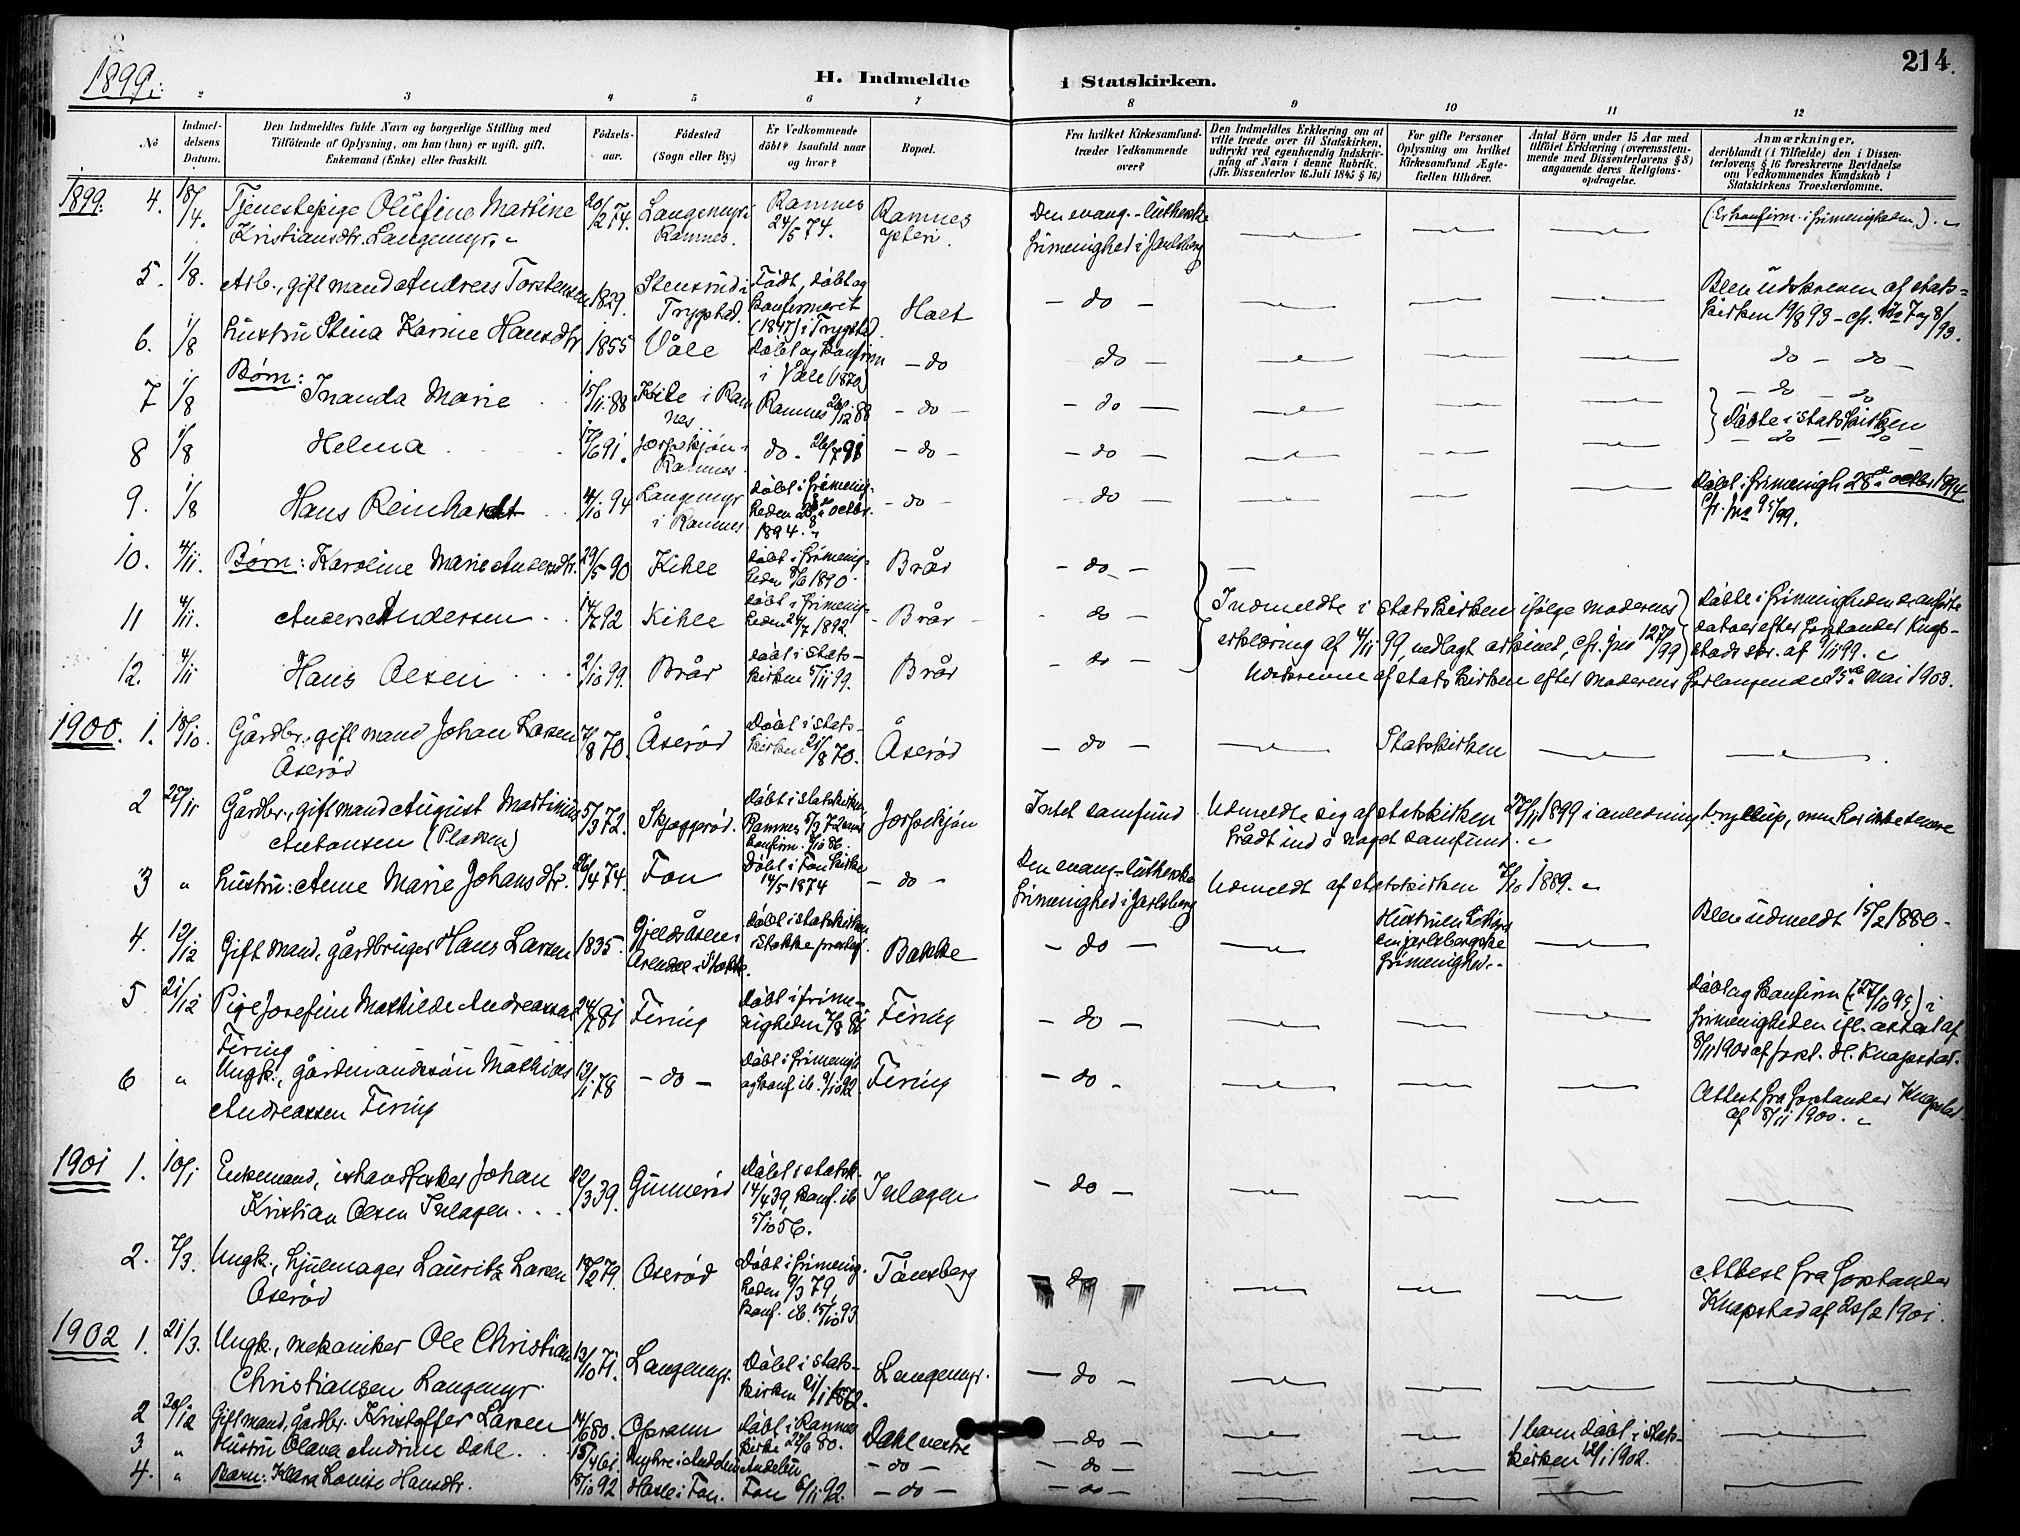 214.
1899.
H. Indmeldte i Statskirken.
2 3 4 5 6 7 8 9 10 11 12
No
Indmel-
delsens
Datum.
Den Indmeldtes fulde Navn og borgerlige Stilling med
Tilföiende af Oplysning, om han (hun) er ugift, gift,
Enkemand (Enke) eller fraskilt.
Födsels-
aar.
Födested
(Sogn eller By.)
Er Vedkommende
döbt? Isaafald naar
og hvor?
Bopæl.
Fra hvilket Kirkesamfund
træder Vedkommende
over?
Den Indmeldtes Erklæring om at
ville træde over til Statskirken,
udtrykt ved egenhændig Indskriv-
ning af Navn i denne Rubrik.
(Jfr. Dissenterlov 16 Juli 1845 § 16)
For gifte Personer
Oplysning om hvilket
Kirkesamfund Ægte-
fællen tilhörer.
Antal Börn under 15 Aar med
tilföiet Erklæring (overensstem-
mende med Dissenterlovens § 8)
angaaende deres Religions-
opdragelse.
Anmærkninger,
deriblandt (i Tilfælde) den i Dissen-
terlovens § 16 foreskrevne Bevidnelse
om Vedkommendes Kundskab i
Statskirkens Troeslærdomme.
1899. 4. 18/4. Tjenestepige Olufine Martine
Kristiansdtr. Langemyr.
20/2 74. Langemyr i
Ramnes.
Ramnes
24/5 74.
Ramnes
Den evang.-lutherske
frimenighed i Jarlsberg
(Er konfirm. i frimenigheden.)
5. 1/8. Arb., gift mand Andreas Torstensen 1829. Stensrud i
Trygstad.
Født, døbt og
konfirmeret
(1847) i Trygstad.
Holt
- do -
Blev udskreven af stats-
kirken 19/8 93 - cfr. No 7 og 8/93.
6. 1/8 Hustru Stina Karine Hansdtr 1855 Våle
Døbt og konfirm
i Våle (1870)
- do
do -
do - do -
Børn:
7 1/8 Inanda Marie 15/11 88 Kile i Ram
nes
Ramnes 26/12 88 - do - - do -
- do - do
Døbte i statskirken
8 1/8 Helma 17/6 91. Jorsekjøn i
Ramnes.
do. 26/7 91 - do - - do - - do - do -
9. 1/8 Hans Reinhardt 4/10 94 Langemyr
i Ramnes
døbt i frimenig-
heden 28de octbr.
1894.
- do - - do -
Døbt i frimenigh 28de octbr 1894
Cfr. No 95/99.
10. 4/11. Børn: Karoline Marie Andersdtr. 29/5 90 Kihle
døbt i frimenig-
heden 8/6 1890.
Brår - do -
11 4/11. Anders Andersen 14/7 92 Kihle
døbt i frimenig-
heden 24/7 1892.
- Brår - - do -
Indmeldte i statskirken ifølge moderens
erklæring af 4/11 99, nedlagt arkivet, cfr. jno 127/99
Døbte i frimenigheden de anførte
datoer efter forstander Knap-
stads skr. af 4/11 99.
12. 4/11 Hans Olsen 2/10 99. Brår
døbt i stats-
kirken 5/11 99.
Brår - do -
Udskreven af statskirken efter moderens forlangende 25de Mai 1903.
1900. 1. 18/10. Gårdbr., gift mand Johan Larsen
Åserød
7/8 70. Åserød
Døbt i stats-
kirken 21/8 70.
Åserød - do - Statskirken
2 27/11 Gårdbr., gift mand August Martinius
Antonsen (Plassen)
5/3 72. Skjøggrød.
Døbt i statskirken,
Ramnes 5/3 72
konfirm. 7/10 86.
Jorsekjøn
Intet samfund
Udmeldte sig af statskirken 27/11 1899 i anledning bryllup, men har ikke senere
trådt ind i noget samfund.
3 " Hustru: Anne Marie Johansdtr. 26/4 74. Fon
Døbt i Fon kirke
14/5 1874
- do -
Den evang.-lutherske
frimenighed i Jarlsberg
Udmeldt af statskirken 7/10 1889.
4. 12/12 Gift mand, gårdbruger Hans Larsen 1835. Gjelsåsen i
Arendal i Stokke.
døbt i statskirken
i Stokke prestegj.
Bakke - do -
Hustruen tilhører
den jarlsbergske
frimenighed.
Blev udmeldt 15/2 1880.
5 21/12 Pige Josefine Mathilde Andreasdtr
Firing
24/7 81 Firing
Døbt i frime-
nigheden 7/8 81
Firing - do -
døbt og konfirm (27/10 95) i
frimenigheden ifl. attest af
8/11 1900 af forst. H. Knapstad.
6 " Ungk., gårdmandssøn Mathias
Andreassen Firing
13/1 78 - do -
Døbt i frimenigh
og konf. ib. 9/10 92.
Firing - do -
Attest fra forstander Knapstad
af 8/11 1900.
1901 1. 10/1 Enkemand, ishandlerker Johan
Kristian Olsen Islagen
22/3 39. Gunnerød
Døbt i statsk.
14/4 39, konf. ib
5/10 56.
Islagen - do -
2. 7/3. Ungk., hjulmager Lauritz Larsen
Åserød
18/2 79. Åserød
Døbt i frimenig-
heden 9/3 79,
konf. ib. 15/10 93
Tønsberg - do -
Attest fra forstander
Knapstad af 20/2 1901.
1902 1. 21/3. Ungk., mekaniker Ole Christian
Christiansen Langemyr
13/10 71. Langemyr.
Døbt i stats-
kirken 21/1 1872.
Langemyr. - do -
2 20/12 Gift mand, gårdbr. Kristoffer Larsen 14/6 80. Oprann
Døbt i Ramnes
kirke 22/8 80.
Dahl vestre - do -
1 barn døbt i stats-
kirken 12/1 1902.
3 " Hustru Olava Andrine Dahl. 15/4 61 Myhre i Andebu Andebu - do - - do -
4. " Barn: Klara Lovise Hansdtr. 18/10 92 Hasle i Fon. Fon 6/11 92. - do - - do -